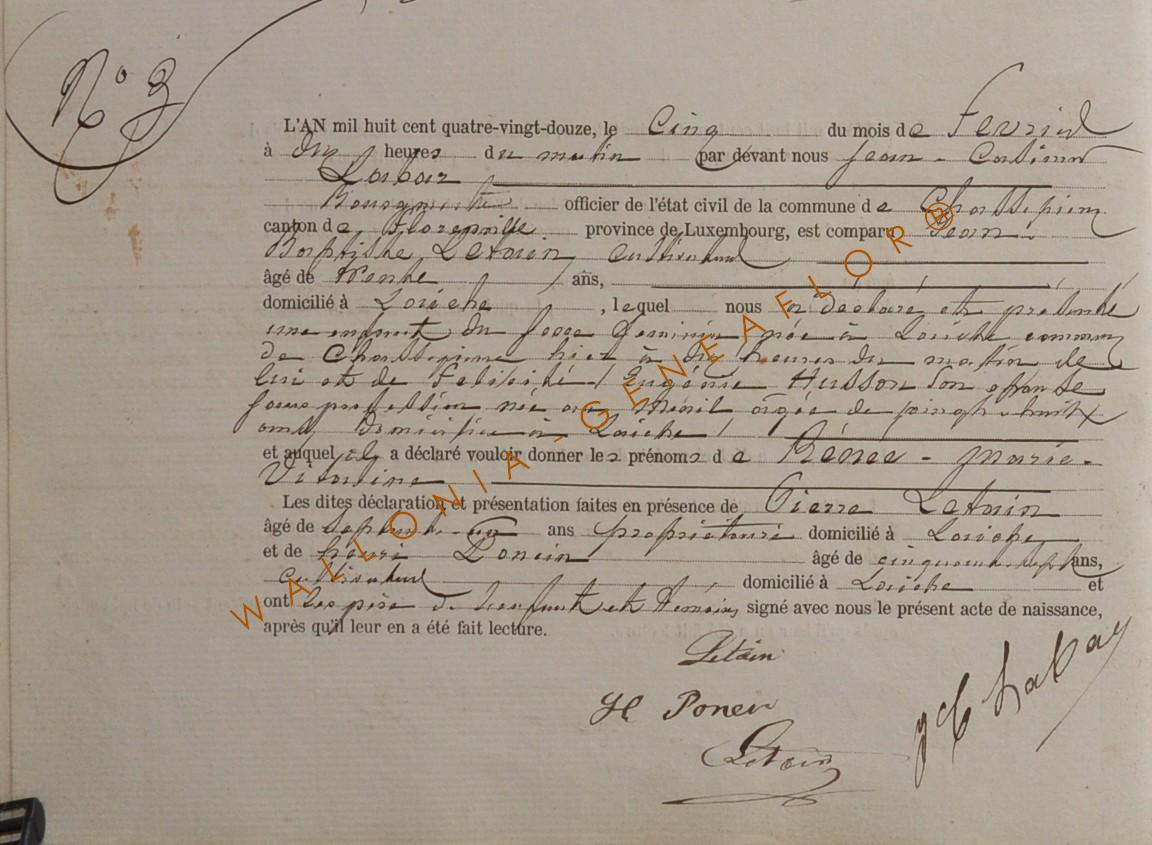 N° 3
L'AN mil huit cent quatre-vingt-douze, le Cinq du mois de Fevrier
à dix heures du matin par devant nous Jean - Casimir
Labay
Bourgmestre officier de l'état civil de la commune de Chassepierre
canton de Florenville province de Luxembourg, est comparu Jean-
Baptiste Letain, cultivateur
âgé de trente ans,
domicilié à Laiche, lequel nous a déclaré et présenté
une enfant du sexe féminin née à Laiche commune
de Chassepierre hier à dix heures du matin de
lui et de Félicité Eugénie Husson son épouse
sans profession née au Ménil âgée de vingt-huit
ans, domiciliée à Laiche
et auquel il a déclaré vouloir donner les prénoms de Rénée - Marie -
Victorine
Les dites déclaration et présentation faites en présence de Pierre Letain
âgé de septante-un ans propriétaire domicilié à Laiche
et de henri Poncin âgé de cinquante sept ans,
cultivateur domicilié à Laiche et
ont les père de l'enfant et témoins signé avec nous le présent acte de naissance,
après qu'il leur en a été fait lecture.
Letain
H Poncin
Letain
JC Labay
WALLONIA-GENEAFLOR®